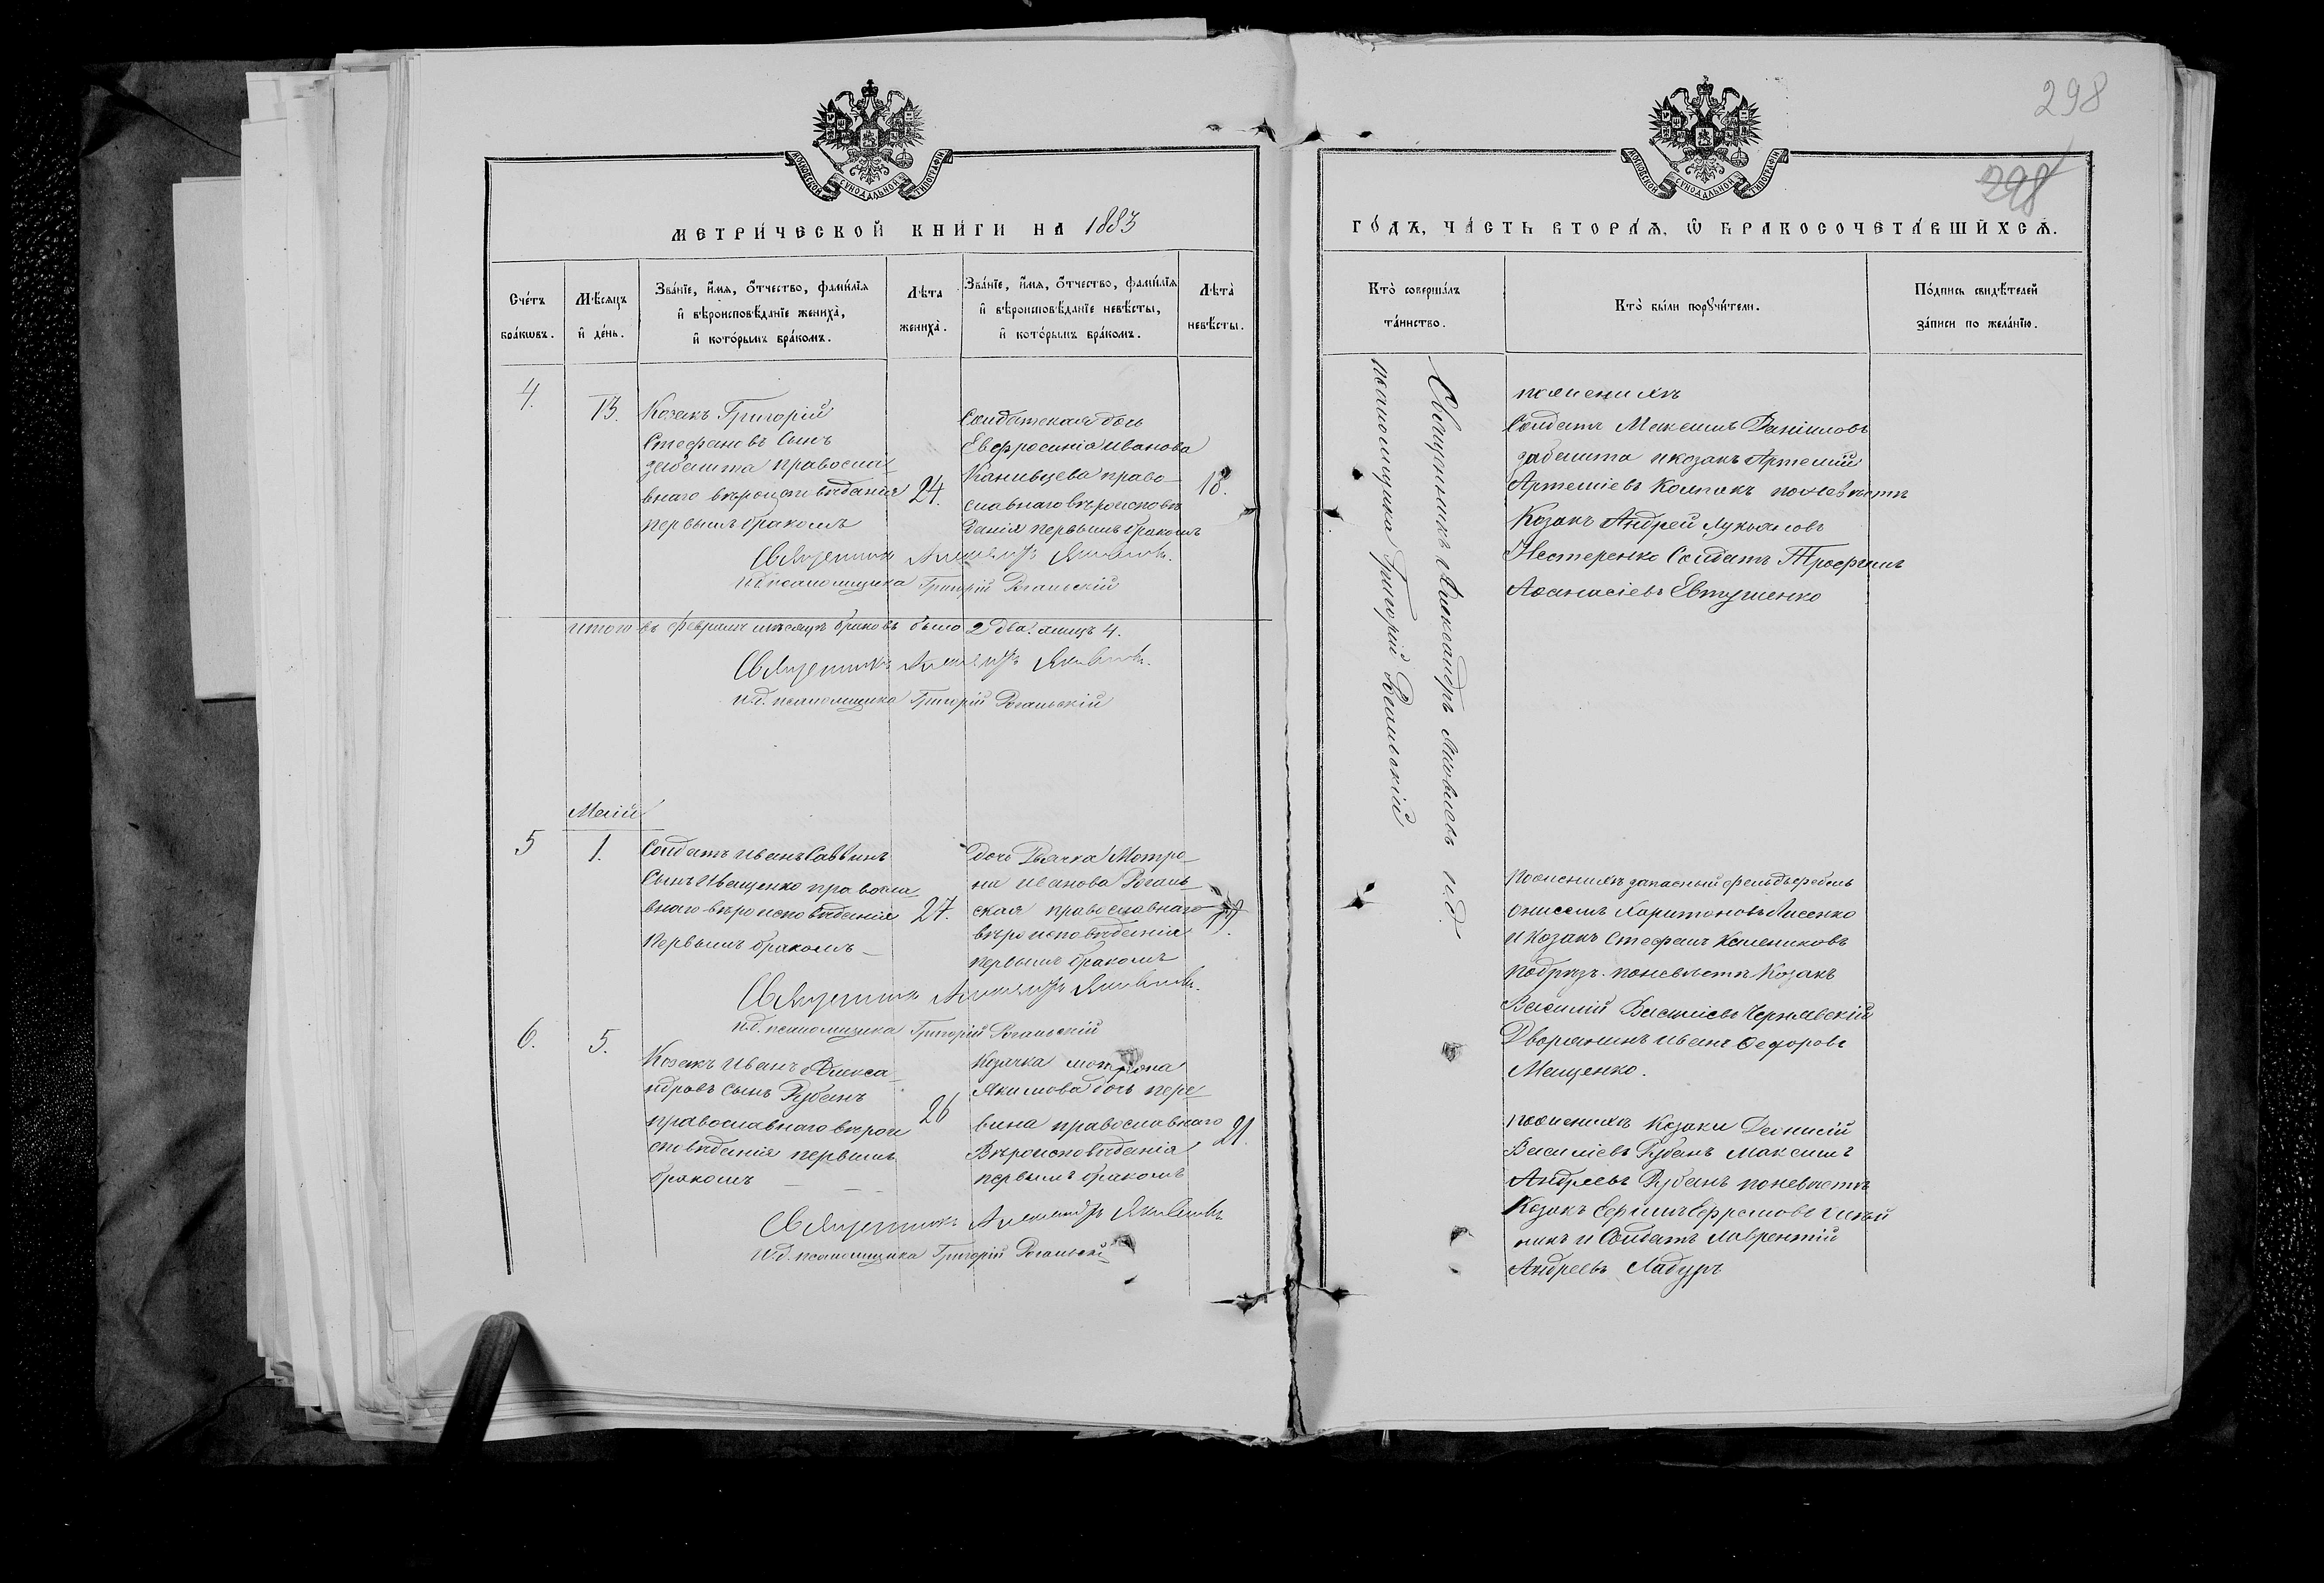 298
298
МОСКОВСКОЙ СѴНОДАЛЬНОЙ ТИПОГРАФІИ
МЕТРИ́ЧЕСКОЙ КНИ́ГИ НА 1883
Сче́тъ бра́кѡвъ.
Мѣ́сяцъ и҆ де́нь.
Зва́нїе, и҆́мѧ, ѻ҆́тчество, фами́лїѧ
и҆ вѣроисповѣ́данїе жениха̀,
и҆ кото́рымъ бра́комъ.
Лѣ́та жениха̀.
Зва́нїе, и҆́мѧ, ѻ҆́тчество, фами́лїѧ
и҆ вѣроисповѣ́данїе невѣ́сты,
и҆ кото́рымъ бра́комъ.
Лѣ́та невѣ́сты.
4.
13.
Козакъ Григорій
Стефановъ Сынъ
Забашта православ
внаго вѣроисповѣданія
первымъ бракомъ
24.
Солдатская дочь
Евфросинія Иванова
Канивцева право-
славнаго вѣроисповѣ
данія первымъ бракомъ
18.
Священникъ Александръ Яковлевъ.
И.д. псаломщика Григорій Рогальскій
итого въ февралѣ мѣсяцѣ браковъ было 2 два. лицъ 4.
Священникъ Александръ Яковлевъ.
И.д. псаломщика Григорій Рогальскій
Маій
5
1.
Солдатъ Иванъ Саввинъ
Сынъ Ивещенко правосла
внаго вѣроисповѣданія
первымъ бракомъ
27.
дочь Дьячка Мотро-
на Иванова Рогаль-
ская православнаго
вѣроисповѣданія
первымъ бракомъ
Священникъ Александръ Яковлевъ.
И.д. псаломщика Григорій Рогальскій
6.
5.
Козакъ Иванъ Алекса-
ндровъ сынъ Рубанъ
православнаго вѣрои
сповѣданія первымъ
бракомъ
26
Козачка Мотрона
Якимова дочь пере
вина православнаго
Вѣроисповѣданія
первымъ бракомъ
21.
Священникъ Александръ Яковлевъ.
И.д. псаломщика Григорій Рогальскі
МОСКОВСКОЙ СѴНОДАЛЬНОЙ ТИПОГРАФІИ
ГО́ДЪ, ЧА́СТЬ ВТОРА́Ѧ, Ѽ БРАКОСОЧЕТА́ВШИХСѦ.
Кто̀ соверша́лъ та́инство.
Кто̀ бы́ли порꙋчи́тели.
По́дпись свидѣ́телей за́писи по жела́нїю.
Священникъ Александръ Яковлевъ И.д.
псаломщика Григорій Рогальскій
по женихѣ
Солдатъ Максимъ Даниловъ
Забашта и козакъ Артемій
Артеміевъ Колпакъ по невѣстѣ
Козакъ Андрей Лукьяновъ
Нестеренко Солдатъ Трофимъ
Аѳанасіевъ Евтушенко
По женихѣ запасный фельдфебель
Онисимъ Харитоновъ Лисенко
и Козакъ Стефанъ Калениковъ
Подрѣзъ. по невѣстѣ Козакъ
Василій Васильевъ Чернявскій
Дворянинъ Иванъ Ѳедоровъ
Мащенко.
По женихѣ Козаки Деонисій
Васильевъ Рубанъ Максимъ
Андреевъ Рубанъ по невѣстѣ
Козакъ Ефремовъ
никъ и Солдатъ Лаврентій
Андреевъ Ладуръ